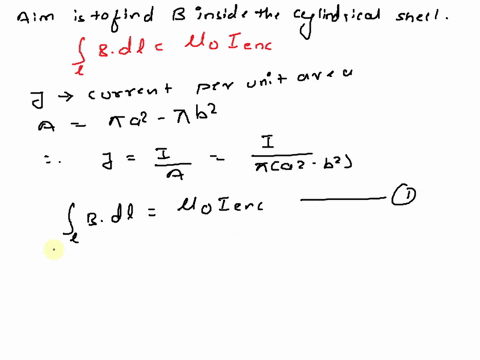 Aim is to find B inside the cylindrical shell.
∫ₗ B.dl = μ₀ Ienc
J → current per unit area
A = πa² - πb²
∴ J = I/A = I/π(a² - b²)
∫ₗ B.dl = μ₀ Ienc ——— ①